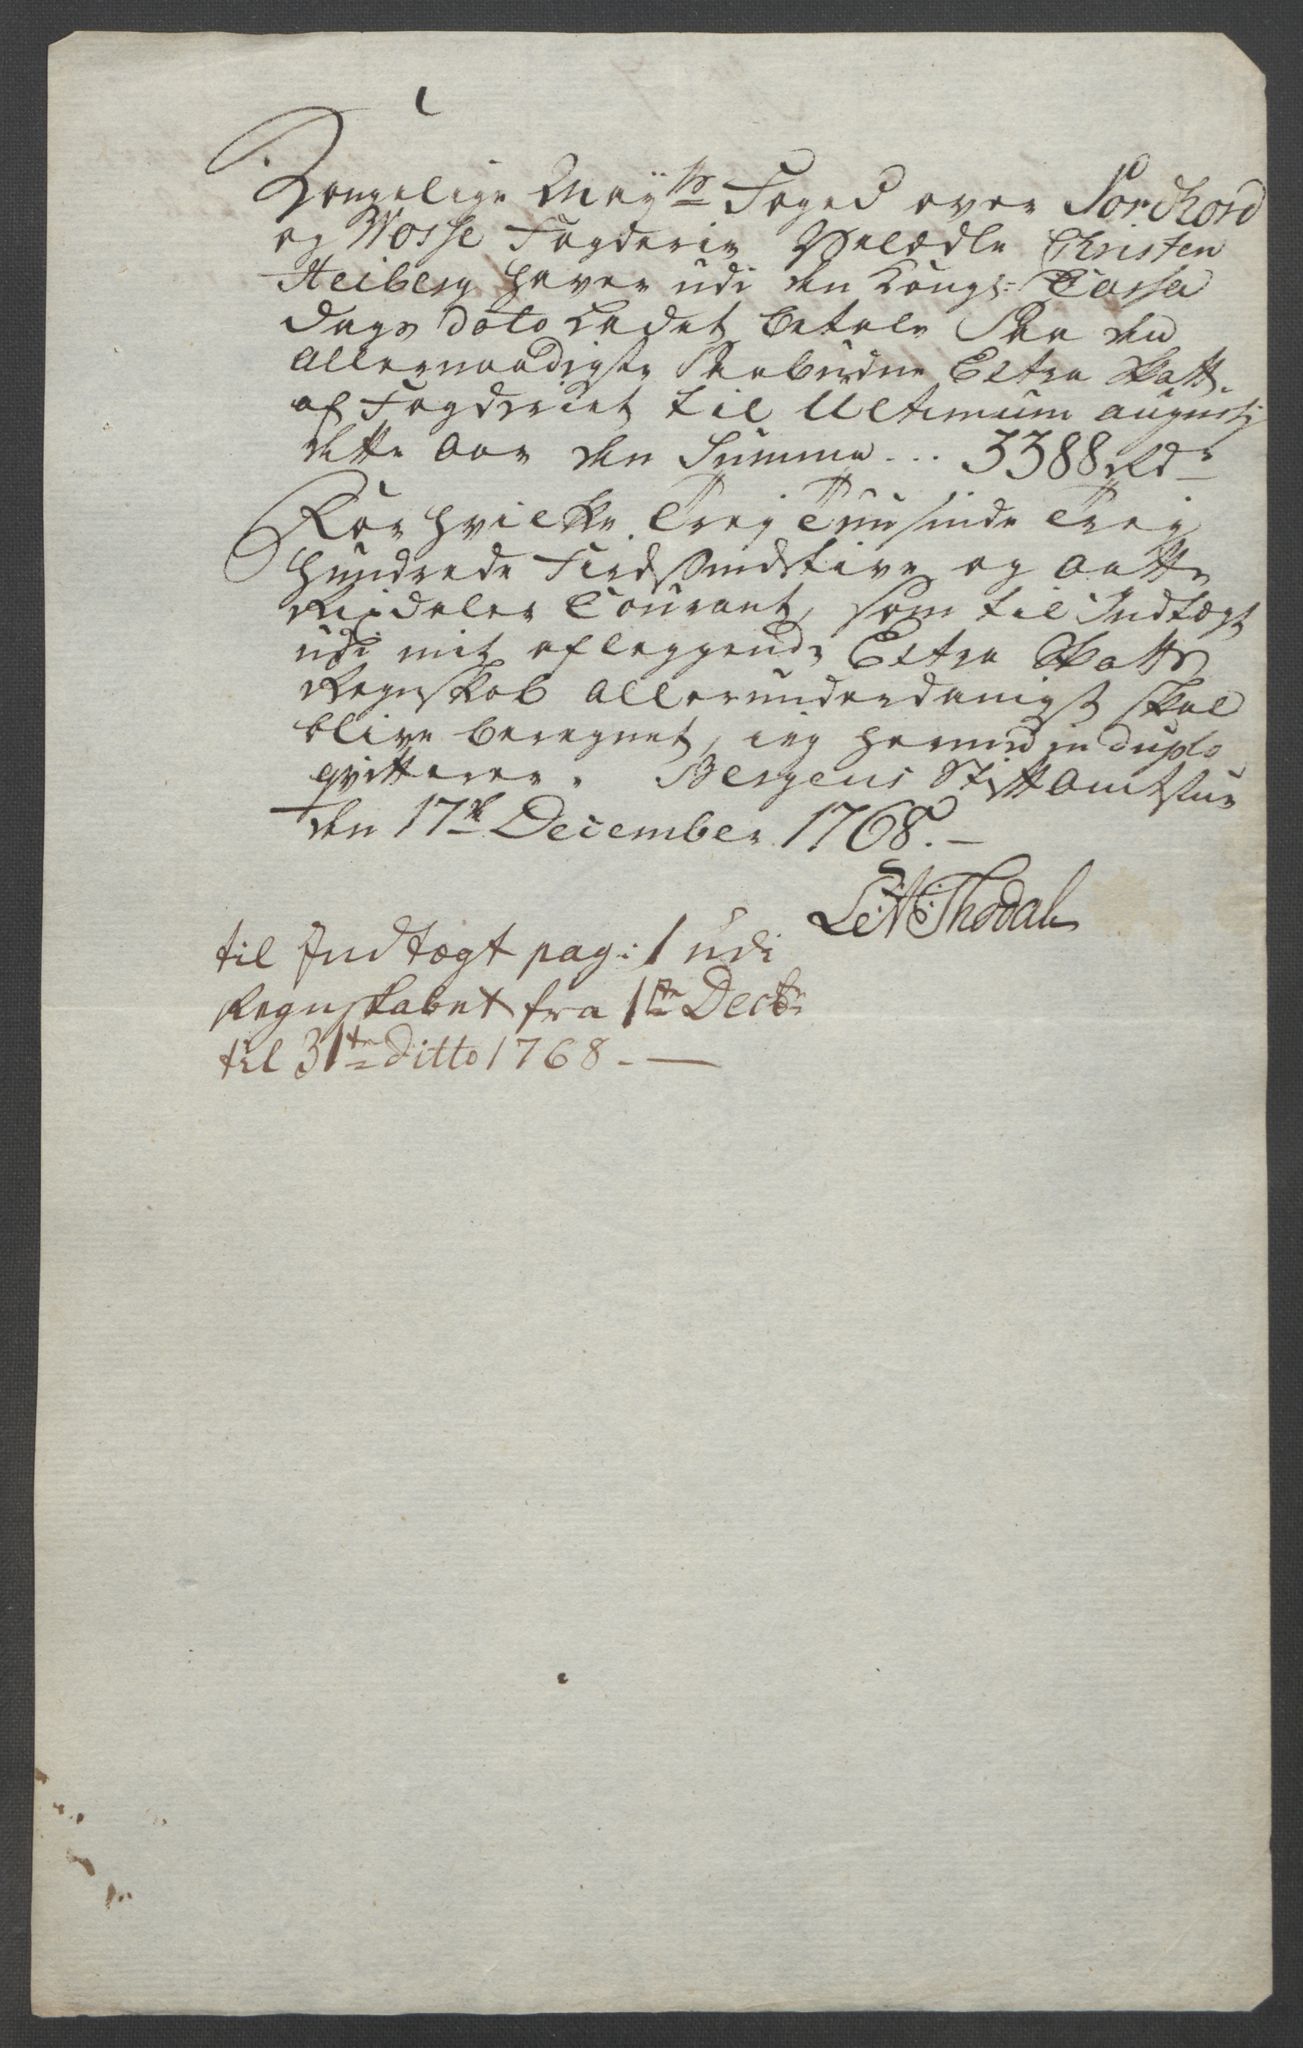 Kongelige Mayts Foged over Nordhord
og Wosse Fogderie Velædle Christen
Heiberg haver udi den Kongl: Cassa
Dags dato ladet betale Paa den
Allernaadigste Paabudne Extra Skatt
af Fogderiet til Ultimum augusti
dette Aar den Summa ... 3388 rdr
For hvilke Trey Tuusinde Trey
hundrede Fiirdsindstive og aatte
Rixdaler Courant, som til Indtægt
udi mit aflæggende Extra Skatte
Regnskab allerunderdanigst skal
blive beregnet, ieg hermed in duplo
qvitterer. Bergens Stiftamtstue
den 17de December 1768. -
L: A: Thodal
til Indtægt pag: 1 udi
Regnskabet fra 1te Decbr
til 31te ditto 1768. -